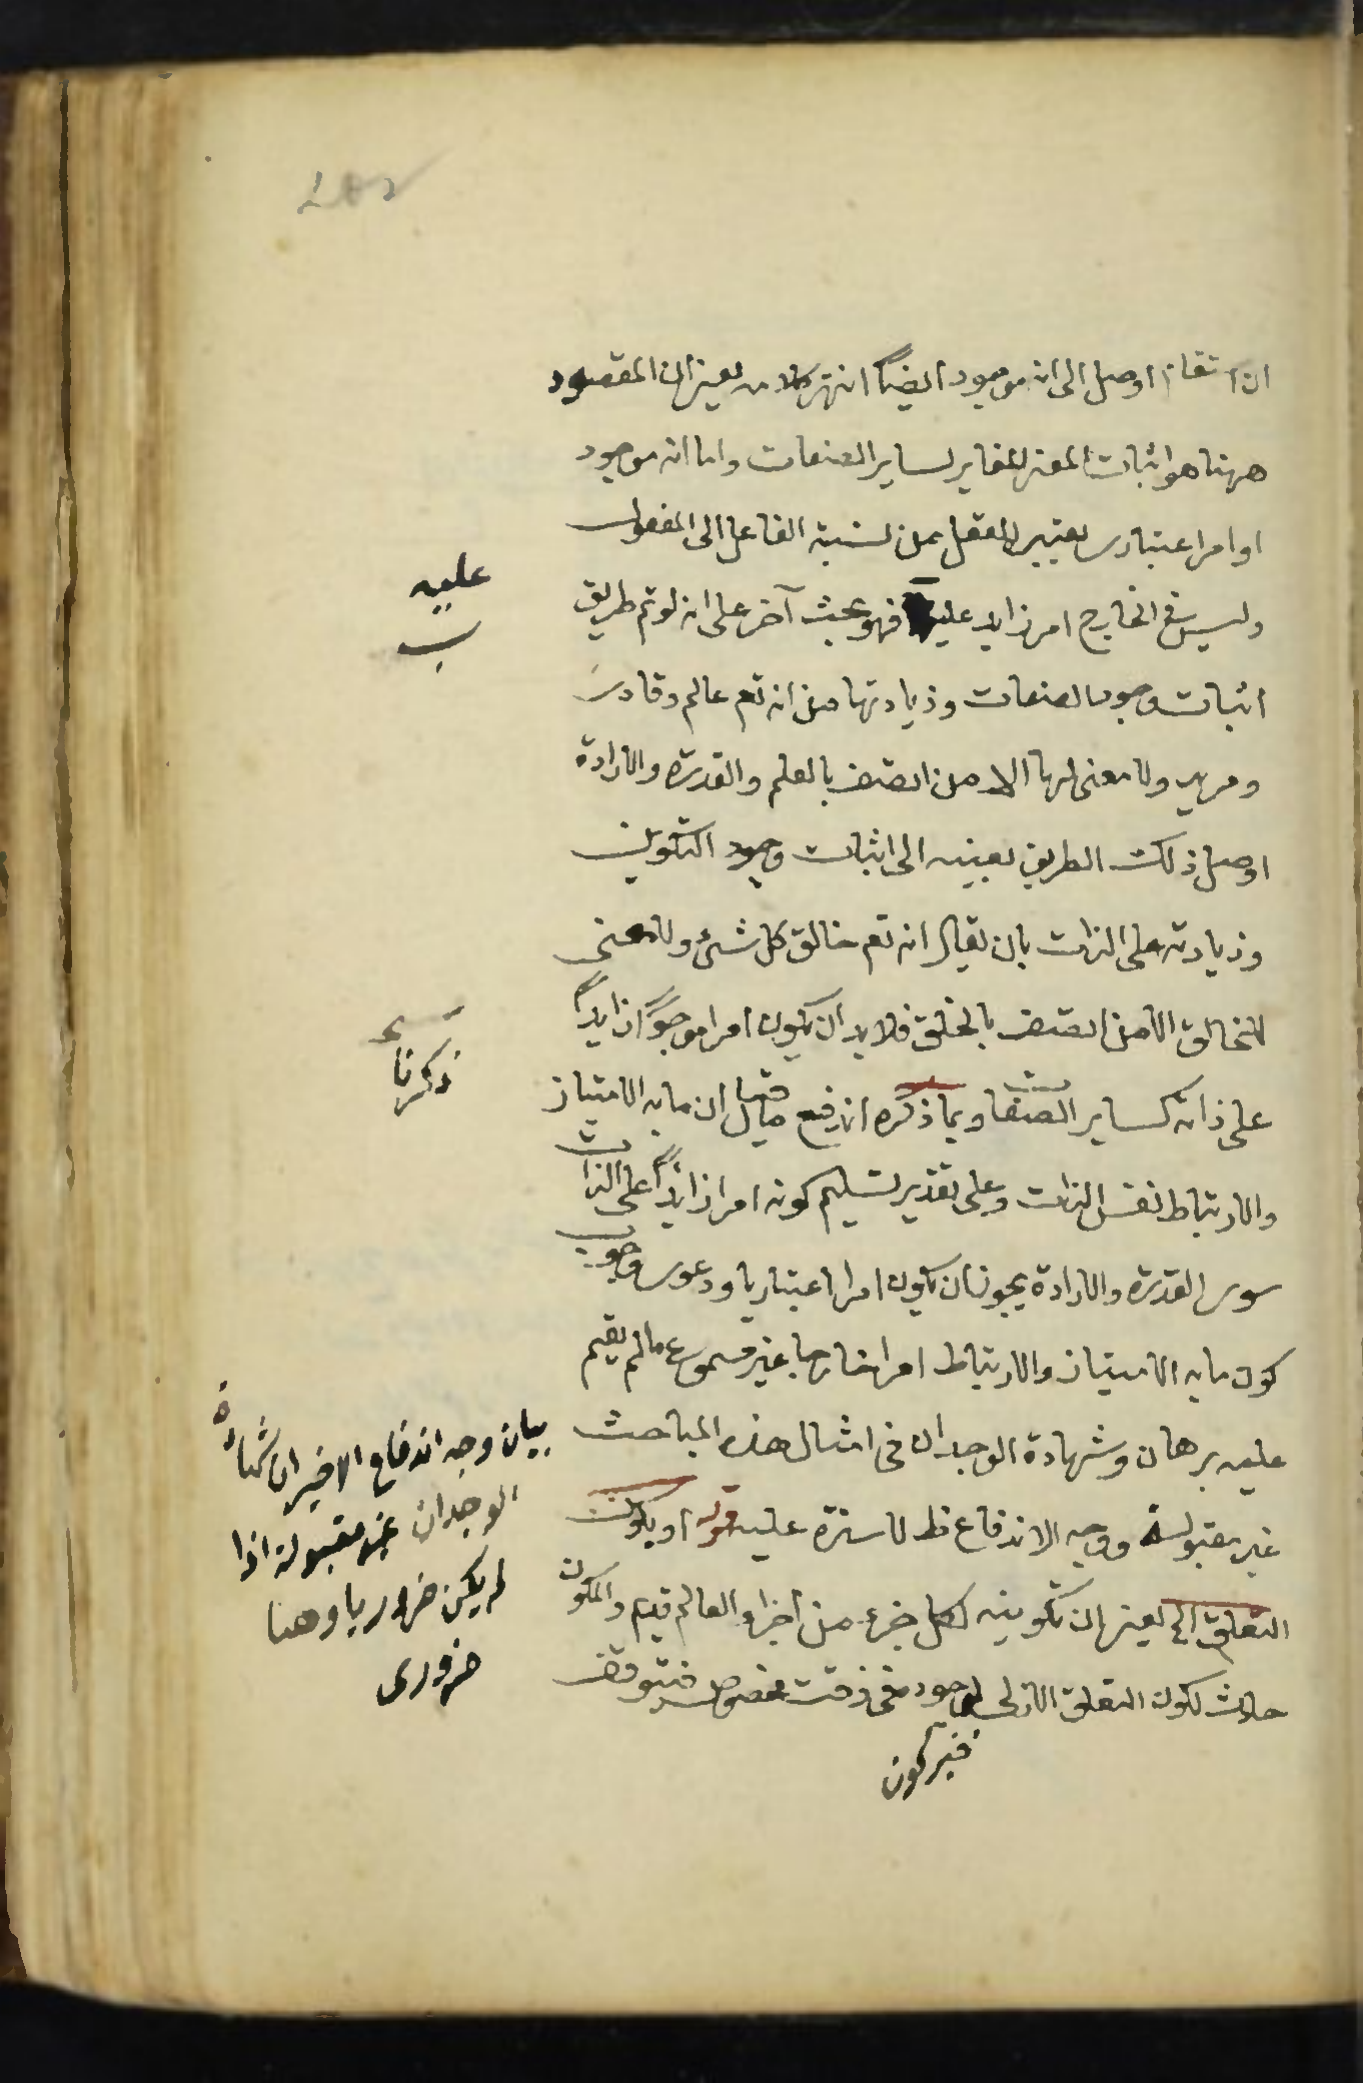 اوصل الى انه موجود ايضاً انتهى كلامه يعني ان المقصود
ههنا هو اثبات المعنى المغاير لساير الصفات واما انه موجود
او امر اعتبارى يعتبر العقل من نسبة الفاعل الى المفعول
وليس في الخارج امر زايد عليه فهو بحث آخر على انه لو تم طريق
اثبات وجود الصفات وزيادتها من انه تعم عالم وقادر
ومريد ولا معنى لها الا من اتصف بالعلم والقدرة والارادة
اوصل ذلك الطريق بعينه الى اثبات وجود التكوين
وزيادته على الذات بان يقال انه تعم خالق كل شئ ولا معنى
للخالق الا من اتصف بالخلق فلا بد ان يكون امرا موجوداً زايداً
على ذاته كساير الصفات وبما ذكره اندفع ما قيل ان ما به الامتياز
والارتباط نفس الذات وعلى تقدير تسليم كونه امرا زايداً على الذات
سوى القدرة والارادة يجوز ان يكون امرا اعتباريا ودعوى وجوب
كون ما به الامتياز والارتباط امرا خارجيا غير مسموع ما لم يقم
عليه برهان وشهادة الوجدان في امثال هذه المباحث
غير مقبولة ووجه الاندفاع ظ لا سترة عليه قوله او يكون
التعلق الخ يعني ان تكوينه لكل جزء من اجزاء العالم قديم والمكون
حادث لكون التعلق الازلى لوجوده في وقت مخصوص فيتوقف
عليه
ب
ذكرنا
بيان وجه اندفاع الاخير ان شهادة
الوجدان غير مقبولة اذا
لم يكن ضروريا وهنا
ضرورى